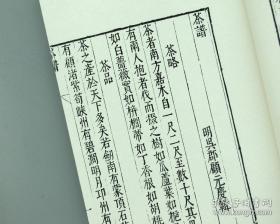 茶譜
明吳郡顧元慶輯
茶略
茶者南方嘉木自一尺二尺至數十尺其
有兩人抱者伐而掇之樹如瓜蘆葉如梔
如白薔薇實如栟櫚蒂如丁香根如胡
茶品
茶之產於天下多矣若劍南有蒙頂石
有顧渚紫筍峽州有碧澗明月邛州有